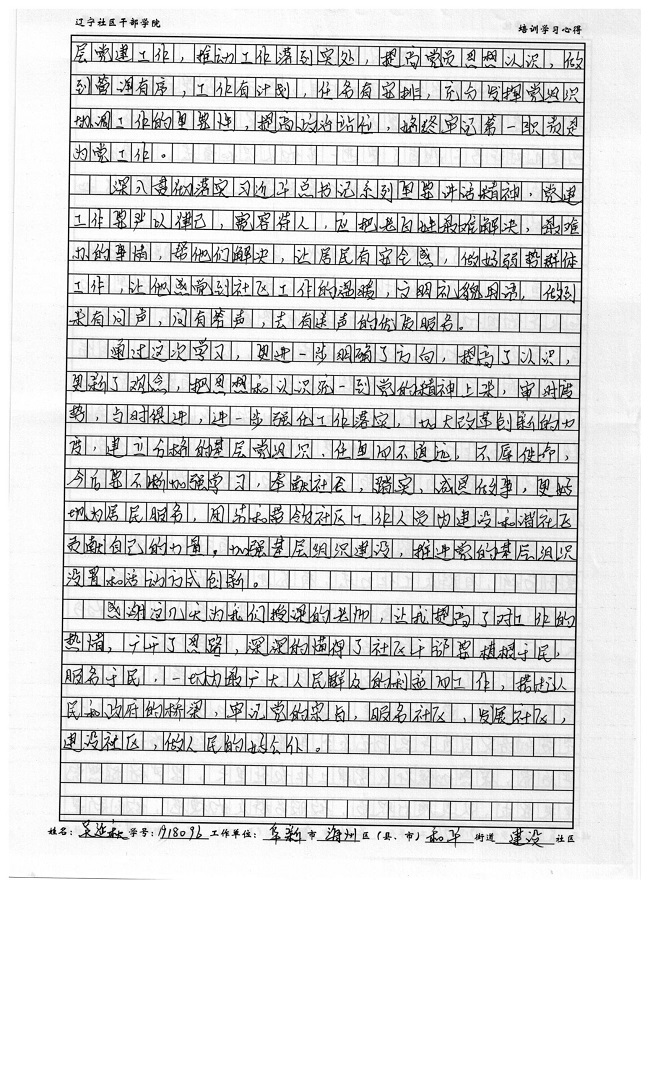 辽宁社区干部学院 培训学习心得
层党建工作，推动工作落到实处，提高党员思想认识，做
到管理有序，工作有计划，任务有安排，充分发挥党组织
协调工作的重要性，提高政治站位，始终牢记第一职责是
为党工作。
深入贯彻落实习近平总书记系列重要讲话精神，党建
工作要严以律己，宽容待人，应把老百姓最难解决，最难
办的事情，帮他们解决，让居民有安全感，做好弱势群体
工作，让他感觉到社区工作的温暖，文明礼貌用语，做到
来有问声，问有答声，去有送声的优质服务。
通过这次学习，更进一步明确了方向，提高了认识，
更新了观念，把思想和认识统一到党的精神上来，审时度
势，与时俱进，进一步强化工作落实，加大改革创新的力
度，建立合格的基层党组织，任重而不道远，不辱使命，
今后要不断加强学习，奉献社会，踏实、成恳做事，更好
地为居民服务，团结和带领社区工作人员为建设和谐社区
贡献自己的力量。加强基层组织建设，推进党的基层组织
设置和活动方式创新。
感谢这几天为我们授课的老师，让我提高了对工作的
热情，广开了思路，深深的懂得了社区干部要植根于民，
服务于民，一切为最广大人民群众的利益而工作，搭起人
民和政府的桥梁，牢记党的宗旨，服务社区，发展社区，
建设社区，做人民的好公仆。
姓名：吴 学号：1918096 工作单位：阜新 市 海州 区（县、市） 和平 街道 建设 社区